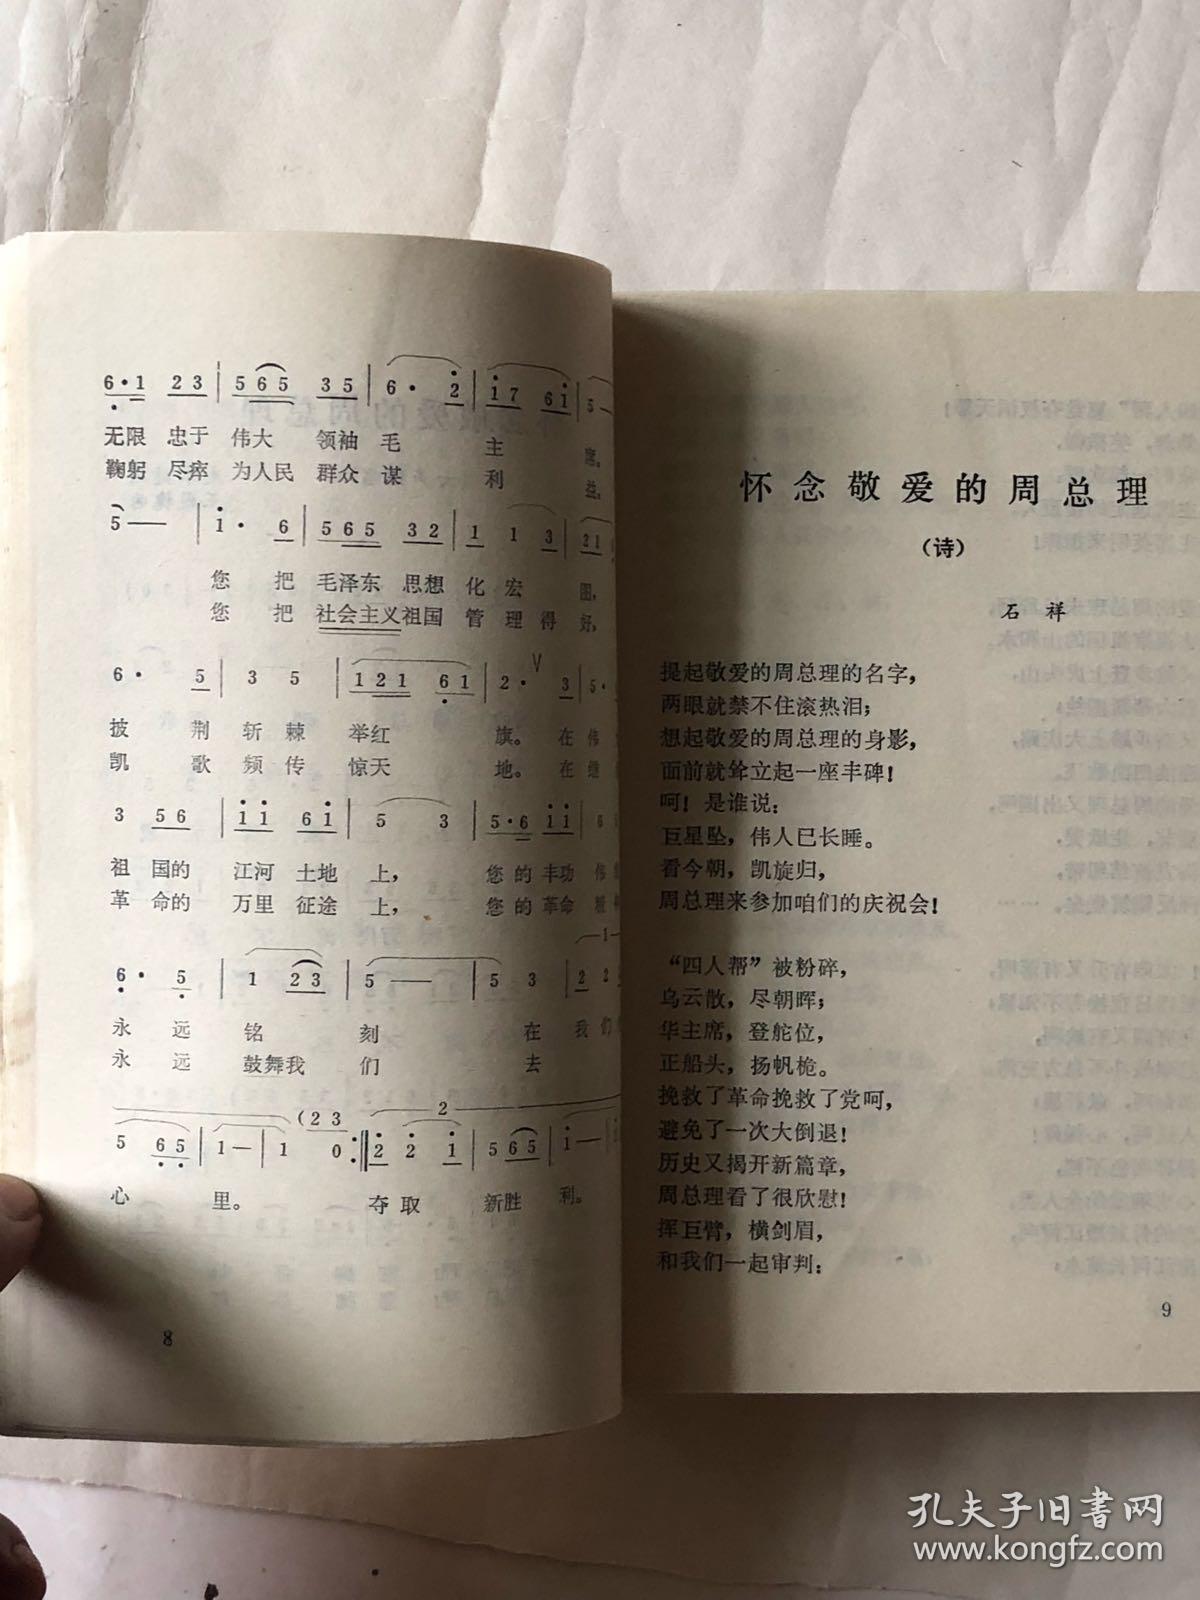 6·1 23 | 565 35 | 6· 2 | 17 61 | 5—
无限 忠于 伟大 领袖 毛 主 席。
鞠躬 尽瘁 为人民 群众 谋 利 益。
5—— | 1· 6 | 565 32 | 1 1 3 | 21
您 把 毛泽东 思想 化 宏 图,
您 把 社会主义祖国 管 理 得 好,
6· 5 | 3 5 | 121 61 | 2· V 3 | 5·
披 荆 斩 棘 举红 旗。 在 伟
凯 歌 频 传 惊天 地。 在 继
3 56 | 11 61 | 5 3 | 5·6 11 | 6
祖 国的 江河 土地 上, 您 的 丰功 伟
革 命的 万里 征途 上, 您 的 革命
6· 5 | 1 23 | 5—— | 5 3 | 2 2
永 远 铭 刻 在 我们
永 远 鼓舞我 们 去
5 65 | 1— | 1 0 (23 :‖ 2 2 1 | 565 | 1— |
心 里。 夺取 新胜 利。
8
怀念敬爱的周总理
(诗)
石 祥
提起敬爱的周总理的名字,
两眼就禁不住滚热泪;
想起敬爱的周总理的身影,
面前就耸立起一座丰碑!
呵! 是谁说:
巨星坠, 伟人已长睡。
看今朝, 凯旋归,
周总理来参加咱们的庆祝会!
“四人帮”被粉碎,
乌云散, 尽朝晖;
华主席, 登舵位,
正船头, 扬帆桅。
挽救了革命挽救了党呵,
避免了一次大倒退!
历史又揭开新篇章,
周总理看了很欣慰!
挥巨臂, 横剑眉,
和我们一起审判:
9
孔夫子旧书网
www.kongfz.com